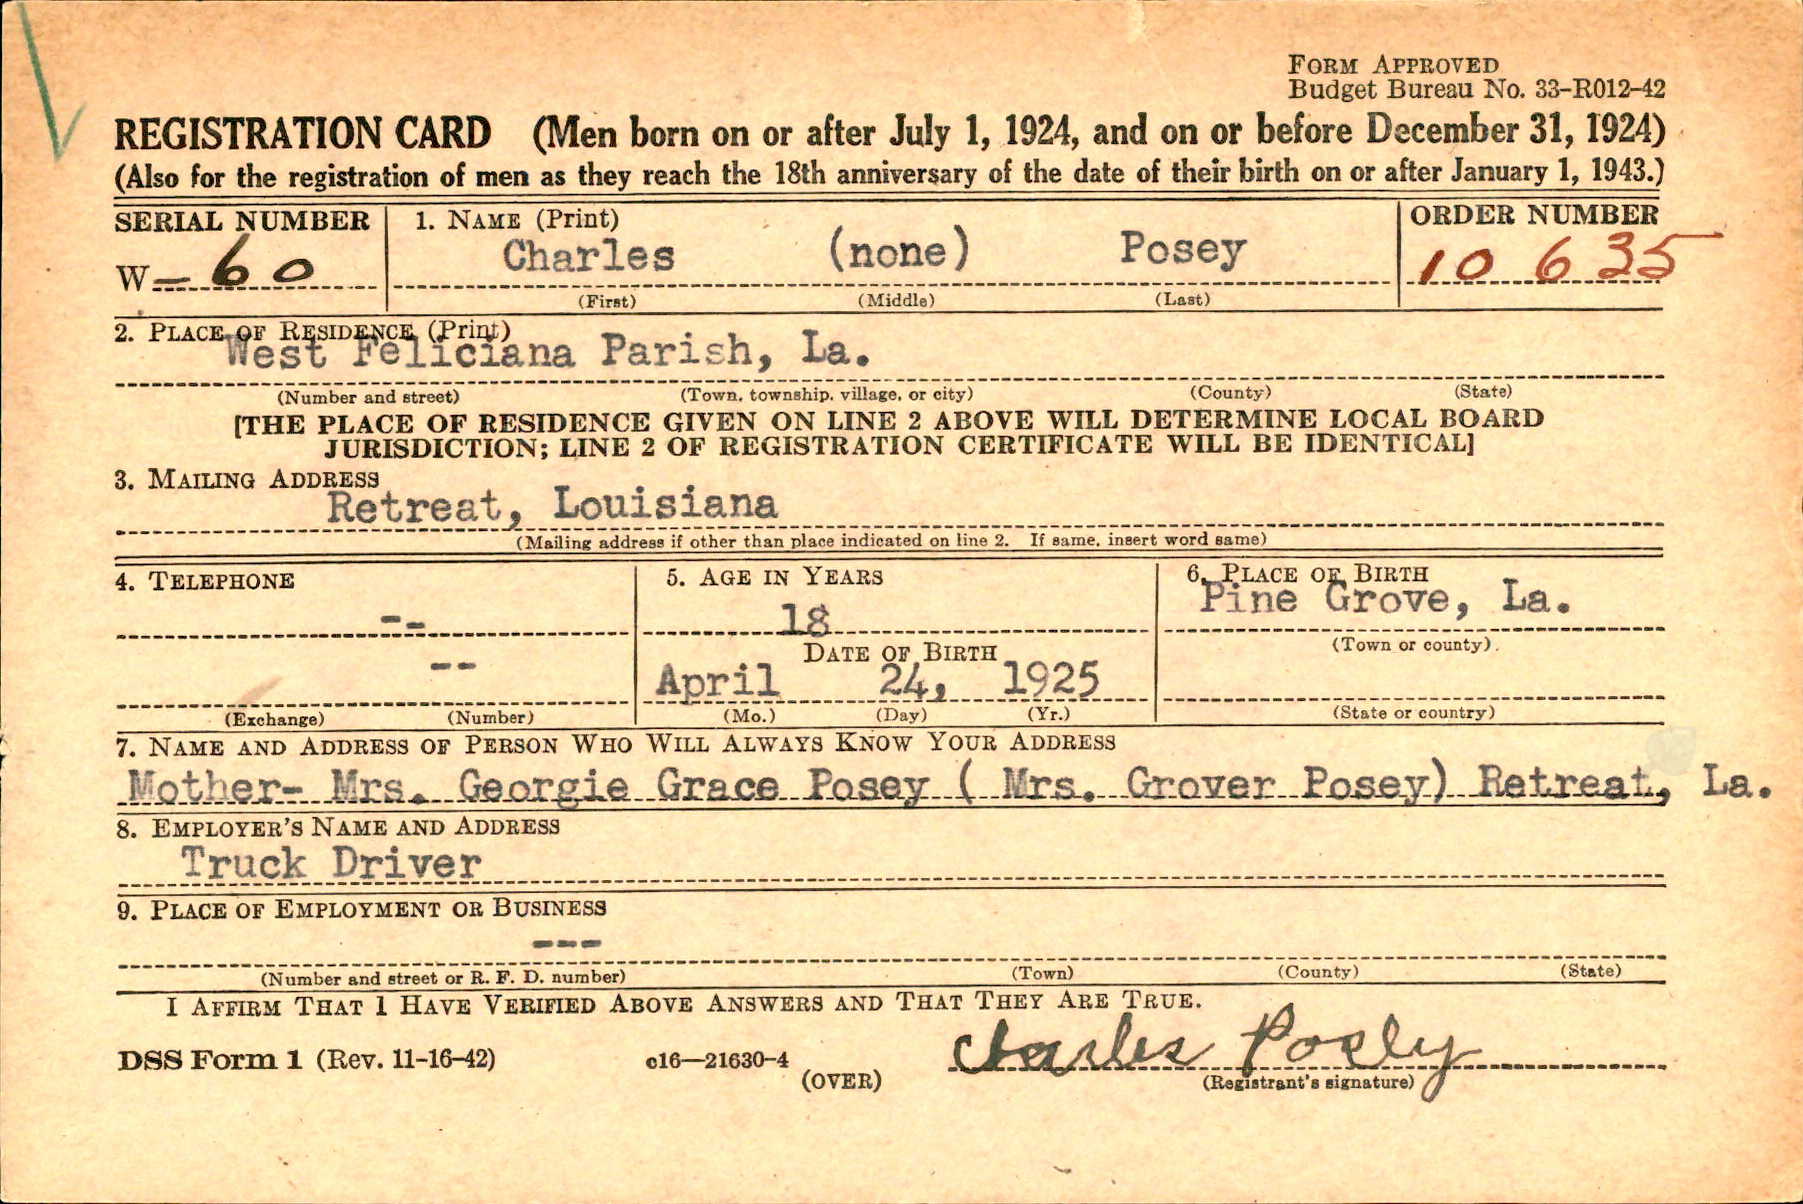 FORM APPROVED
Budget Bureau No. 33-R012-42
REGISTRATION CARD (Men born on or after July 1, 1924, and on or before December 31, 1924)
(Also for the registration of men as they reach the 18th anniversary of the date of their birth on or after January 1, 1943.)
SERIAL NUMBER 1. NAME (Print) ORDER NUMBER
W-60 Charles (none) Posey 10 635
(First) (Middle) (Last)
2. PLACE OF RESIDENCE (Print)
West Feliciana Parish, La.
(Number and street) (Town, township, village, or city) (County) (State)
[THE PLACE OF RESIDENCE GIVEN ON LINE 2 ABOVE WILL DETERMINE LOCAL BOARD
JURISDICTION; LINE 2 OF REGISTRATION CERTIFICATE WILL BE IDENTICAL]
3. MAILING ADDRESS
Retreat, Louisiana
(Mailing address if other than place indicated on line 2. If same, insert word same)
4. TELEPHONE 5. AGE IN YEARS 6. PLACE OF BIRTH
-- 18 Pine Grove, La.
(Town or county)
DATE OF BIRTH
-- April 24, 1925
(Exchange) (Number) (Mo.) (Day) (Yr.) (State or country)
7. NAME AND ADDRESS OF PERSON WHO WILL ALWAYS KNOW YOUR ADDRESS
Mother- Mrs. Georgie Grace Posey ( Mrs. Grover Posey) Retreat, La.
8. EMPLOYER'S NAME AND ADDRESS
Truck Driver
9. PLACE OF EMPLOYMENT OR BUSINESS
---
(Number and street or R. F. D. number) (Town) (County) (State)
I AFFIRM THAT I HAVE VERIFIED ABOVE ANSWERS AND THAT THEY ARE TRUE.
Charles Posey
DSS Form 1 (Rev. 11-16-42) c16—21630-4 (OVER) (Registrant's signature)